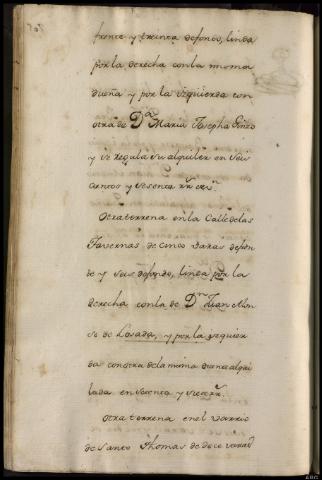 frente y treinta defondo, linda
por la derecha con la misma
dueña y por la izquierda con
otra de Dª Maria Josepha
y se regula su alquiler en seis
cientos y sesenta rrs
Otra terrena en la Calle de las
Tavernas de cinco varas de fren
te y seis defondo, linda por la
derecha con la de Dn Juan Alon
so de Losada, y por la izquier
da con otra de la misma duena alqui
lada en setenta y rrs
Otra terrena en el varrio
de Santo Thomas de doce varas